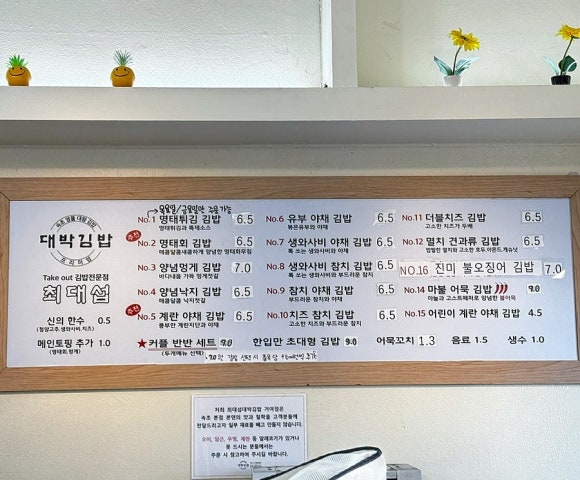 속초 명물 대왕 김밥
대박김밥
프리미엄
Take out 김밥전문점
최대섭
신의 한수 0.5
(청양고추,생와사비,치즈)
메인토핑 추가 1.0
(명태회,멍게)
목요일/금요일만 주문가능
No.1 명태튀김 김밥 6.5
명태튀김과 특제소스
추천
No.2 명태회 김밥 6.5
매콤달콤새콤하게 양념한 명태회무침
No.3 양념멍게 김밥 7.0
바다내음 가득 멍게젓갈
No.4 양념낙지 김밥 6.5
매콤달콤 낙지젓갈
추천
No.5 계란 야채 김밥 6.5
풍부한 계란지단과 야채
No.6 유부 야채 김밥 6.5
볶은유부와 야채
No.7 생와사비 야채 김밥 6.5
톡 쏘는 생와사비와 야채
No.8 생와사비 참치 김밥 6.5
톡 쏘는 생와사비와 부드러운 참치
No.9 참치 야채 김밥 6.5
부드러운 참치와 야채
No.10 치즈 참치 김밥 6.5
고소한 치즈와 부드러운 참치
No.11 더블치즈 김밥 6.5
고소한 치즈가 두배
No.12 멸치 견과류 김밥 6.5
짭짤한 멸치와 고소한 호두,아몬드,캐슈넛
NO.16 진미 불오징어 김밥 7.0
No.14 마불 어묵 김밥 7.0
마늘과 고스트페퍼로 양념한 불어묵
No.15 어린이 계란 야채 김밥 4.5
★커플 반반 세트 9.0
(두개메뉴 선택)
한입만 초대형 김밥 9.0
어묵꼬치 1.3
음료 1.5
생수 1.0
저희 최대섭대박김밥 거여점은
속초 본점 본연의 맛과 철학을 고객분들께
전달드리고자 일부 재료를 빼고 만들지 않습니다.
오이, 당근, 우엉, 계란 등 알레르기가 있거나
못 드시는 분들께서는
주문 시 참고하여 주시길 바랍니다.